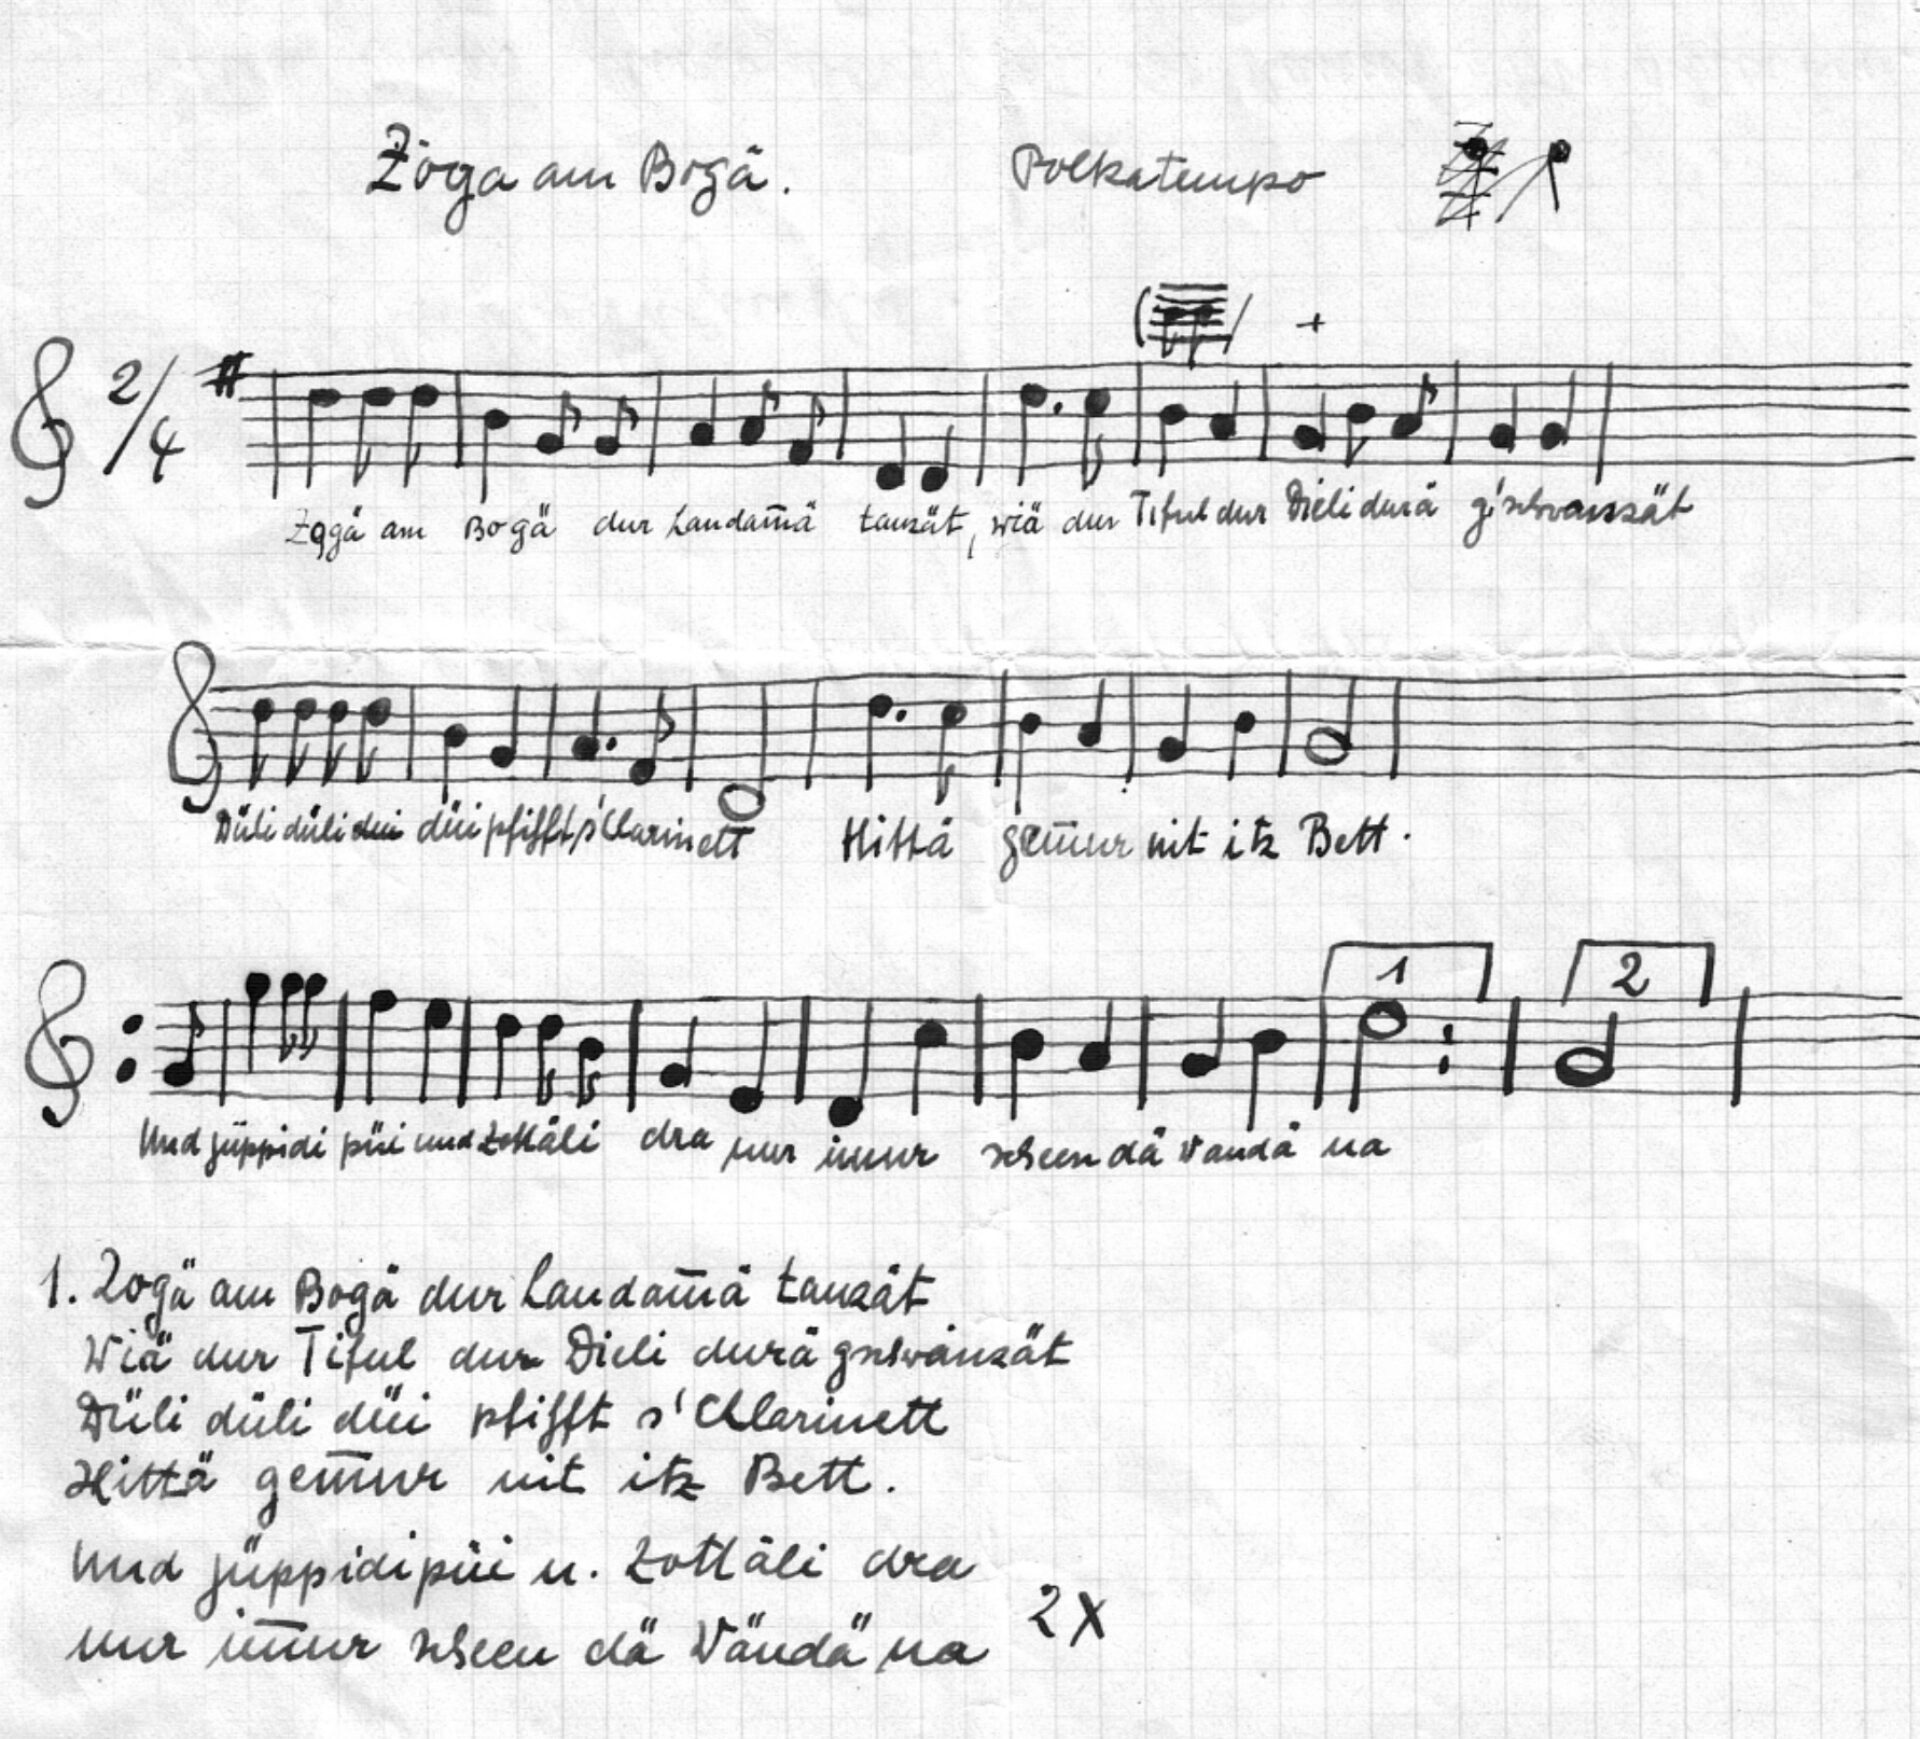 Zoga am Bogä. Polkatempo
2/4
+
Zogä am Bogä dur Landam̄ä tanzät, wiä dur Tiful dur Dieli durä g'schwanzät
Düli düli düi pfifft s'Clarinett Hittä gem̄ur nit itz Bett.
1 2
Und jüppidi püi und Zottäli dra nur immur scheen dä Vandä na
1. Zogä am Bogä dur Landam̄ä tanzät
Wiä dur Tiful dur Dieli durä gschwänzät
Düli düli düi pfifft s'Chlarinett
Hittä gem̄ur nit itz Bett.
Und jüppidipüi u. Zottäli dra
nur im̄ur scheen dä Vändä na
2X